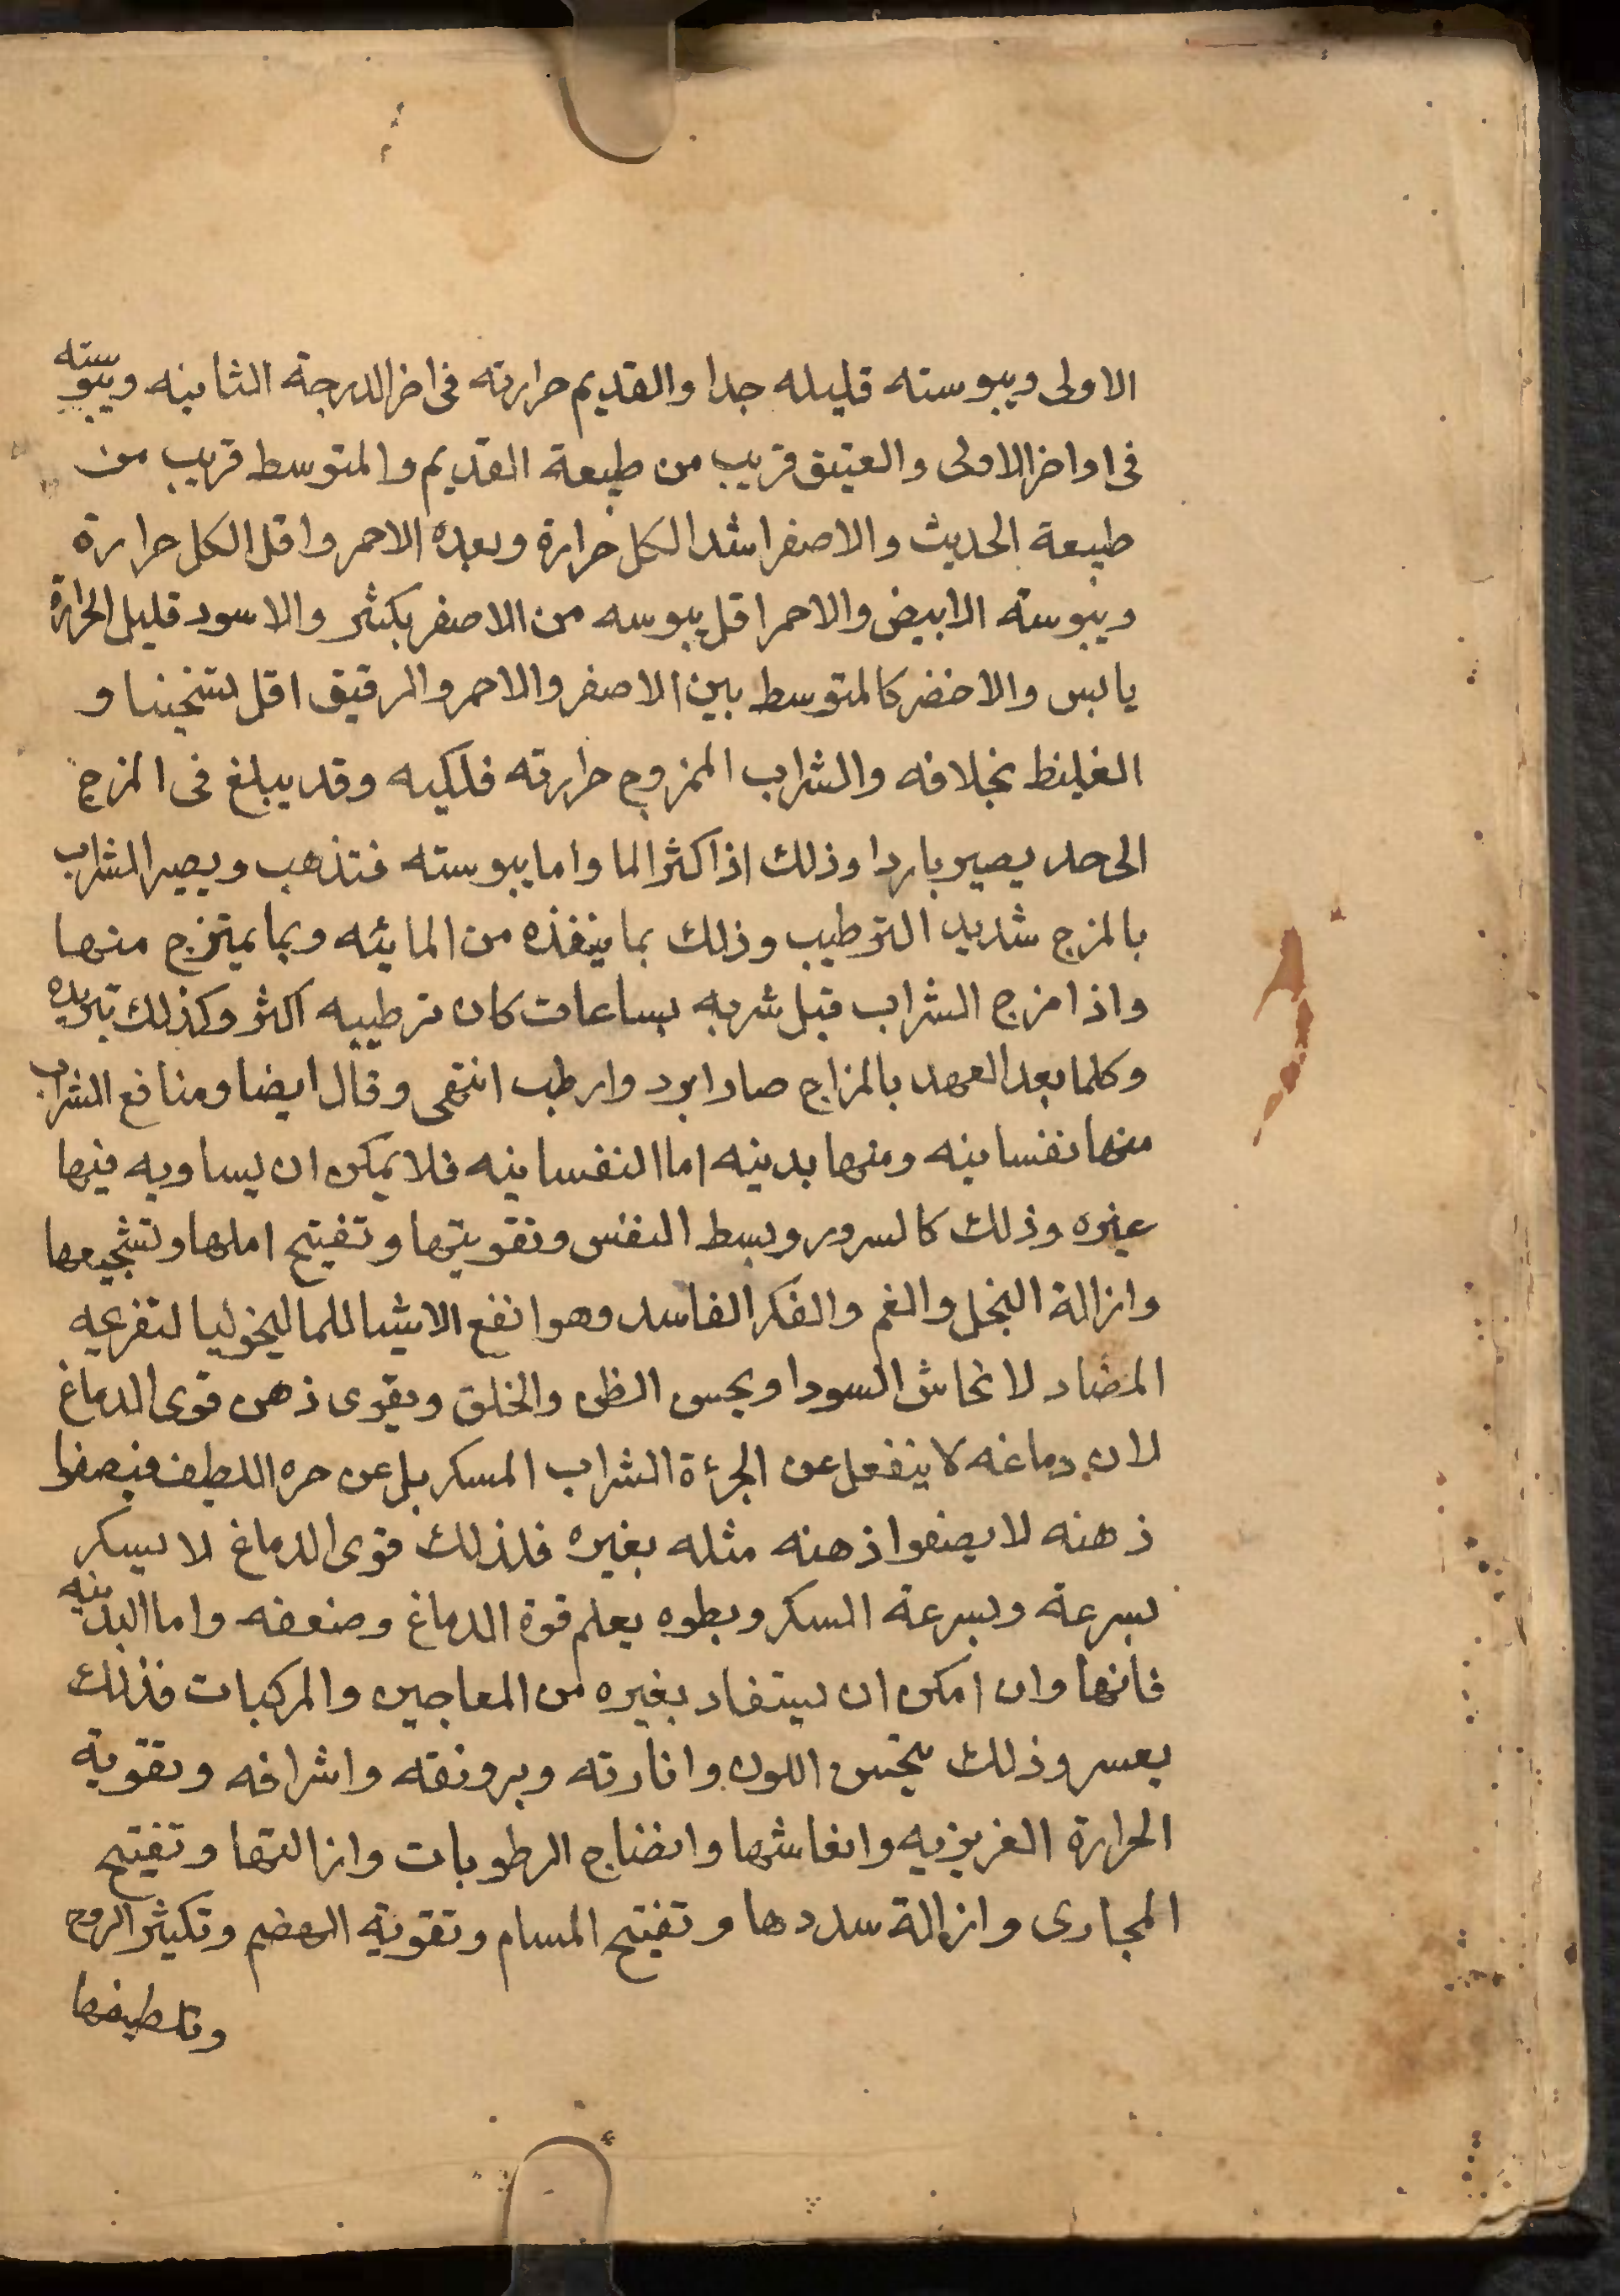 الاولى ويبوسته قليله جدا والقديم حرارته فى اخر الدرجة الثانيه ويبوسته
فى اواخر الاولى والعتيق قريب من طبيعة القديم والمتوسط قريب من
طبيعة الحديث والاصفر اشد الكل حرارة وبعده الاحمر واقل الكل حرارة
ويبوسته الابيض والاحمر اقل يبوسه من الاصفر بكثر والاسود قليل الحرارة
يابس والاخضر كالمتوسط بين الاصفر والاحمر والرقيق اقل تسخينا و
الغليظ بخلافه والشراب الممزوج حرارته فلكيه وقد يبلغ فى المزج
الى حد يصير باردا وذلك اذا كثر الما واما يبوسته فتذهب ويصير الشراب
بالمزج شديد الترطيب وذلك بما ينفذه من المائيه وبما يمتزج منها
واذا مزج الشراب قبل شربه بساعات كان ترطيبه اكثر وكذلك تبريده
وكلما بعد العهد بالمزاج صار ابرد وارطب انتهى وقال ايضا ومنافع الشراب
منها نفسانيه ومنها بدنيه اما النفسانيه فلا يمكن ان يساويه فيها
غيره وذلك كالسرور وبسط النفس وتقويتها وتفتيح املها وتشجيعها
وازالة البخل والغم والفكر الفاسد وهو انفع الاشيا للماليخوليا لتفرعيه
المضاد لانحاش السودا ويحسن الظن والخلق ويقوى ذهن قوى الدماغ
لان دماغه لا ينفعل عن الجرئة الشراب المسكر بل عن حره اللطيف فيصفوا
ذهنه لا يصفوا ذهنه مثله بغيره فلذلك قوى الدماغ لا يسكر
بسرعة وبسرعة السكر وبطوه يعلم قوة الدماغ وضعفه واما البدنيه
فانها وان امكن ان يستفاد بغيره من المعاجين والمركبات فذلك
يعسر وذلك بتحسن اللون وانارته وبرونقه واشراقه وتقوية
الحرارة الغريزيه وانعاشها وانضاج الرطوبات وازالتها وتفتيح
المجارى وازالة سددها وتفتيح المسام وتقوية الهضم وتكثير الروح
وتلطيفها